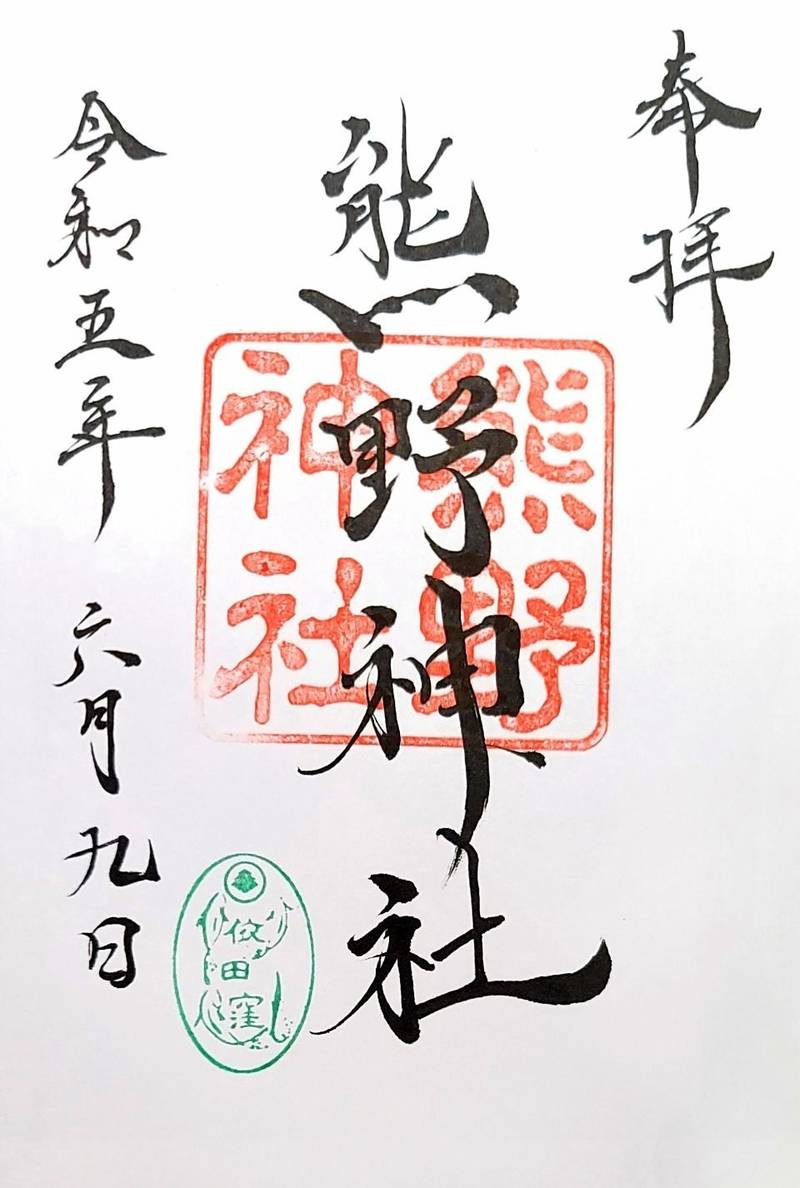 奉拝
熊野神社
熊野
神社
令和五年 六月九日
依田窪